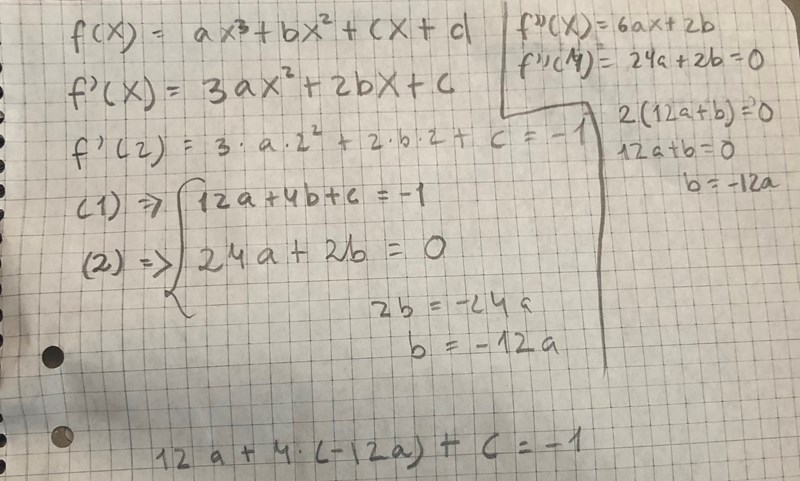 f(x) = ax³ + bx² + cx + d
f'(x) = 3ax² + 2bx + c
f'(2) = 3·a·2² + 2·b·2 + c = -1
(1) => 12a + 4b + c = -1
(2) => 24a + 2b = 0
2b = -24a
b = -12a
12a + 4·(-12a) + c = -1
f''(x) = 6ax + 2b
f''(4) = 24a + 2b = 0
2(12a+b) = 0
12a+b = 0
b = -12a